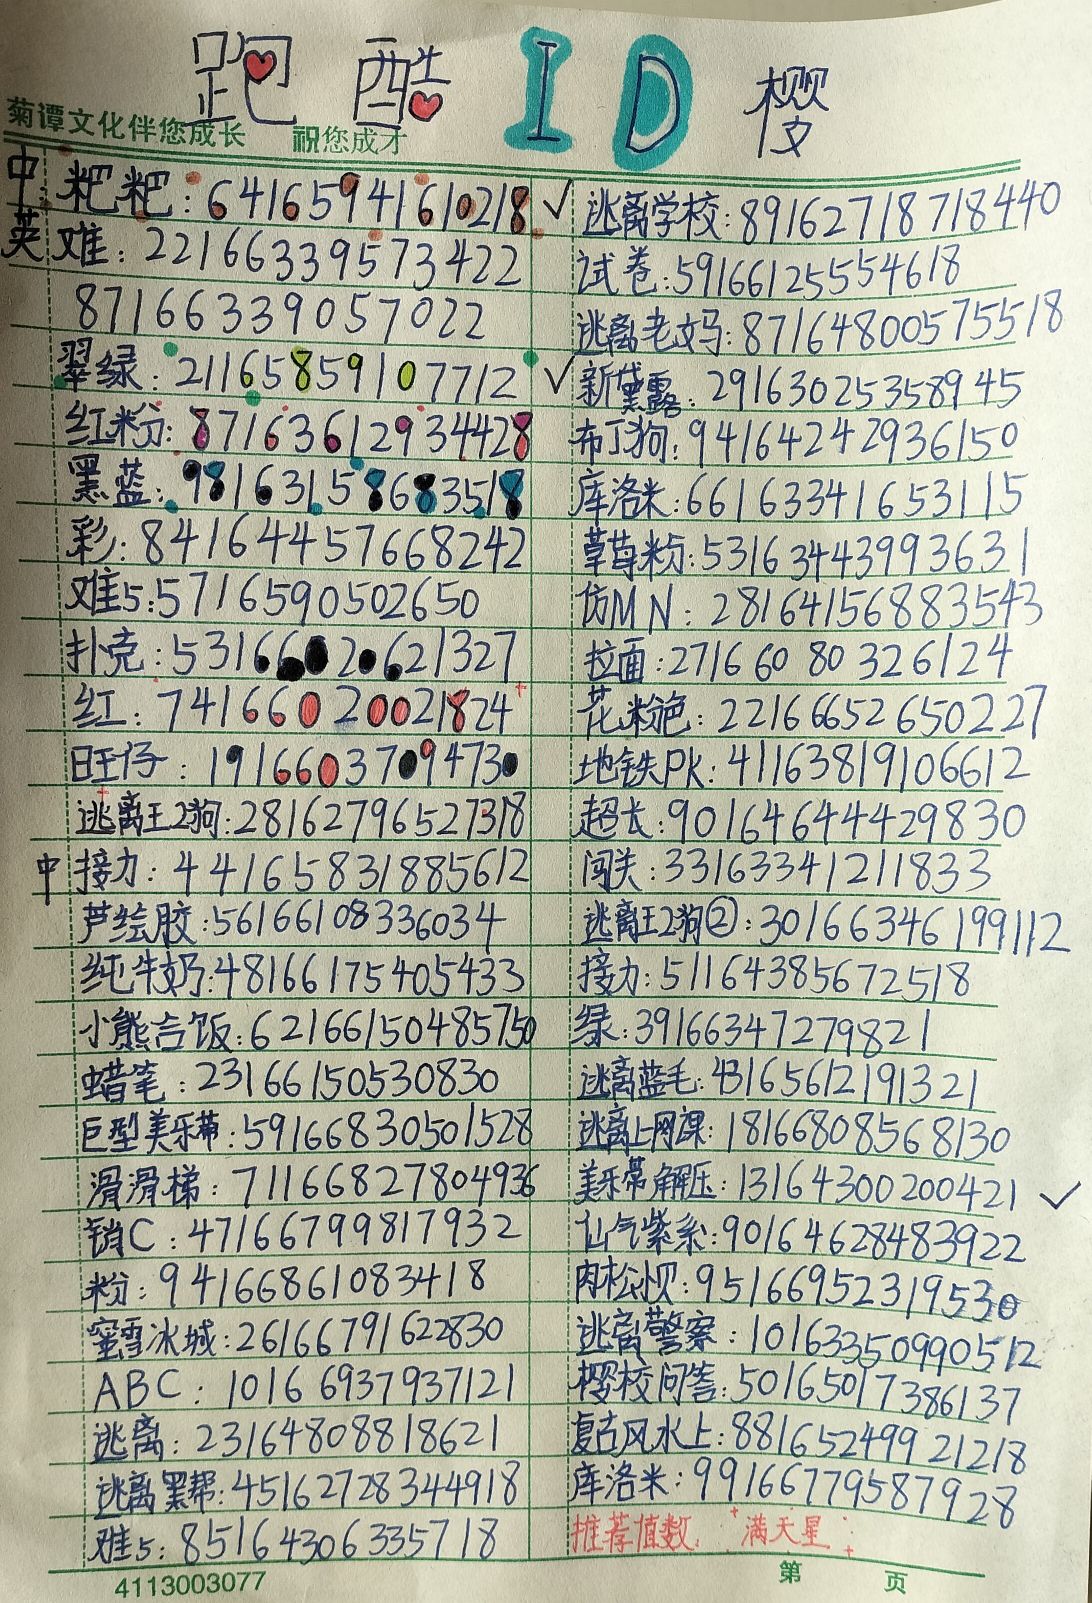 跑酷 ID 樱
菊谭文化伴您成长 祝您成才
中英
粑粑：64165941610218 ✓
难：22166339573422
87166339057022
翠绿：21165859107712 ✓
红粉：87163612934428
黑蓝：98163158683518
彩：84164457668242
难5：5716590502650
扑克：53166020621327
红：74166020021824
旺仔：19166037094730
逃离王2狗：28162796527318
中 接力：44165831885612
芦绘胶：56166108336034
纯牛奶：48166175405433
小熊合饭：62166150485750
蜡笔：23166150530830
巨型美乐蒂：59166830501528
滑滑梯：71166827804936
销C：47166799817932
粉：94166861083418
蜜雪冰城：26166791622830
ABC：10166937937121
逃离：23164808818621
逃离黑帮：45162728344918
难5：85164306335718
逃离学校：89162718718440
试卷：59166125554618
逃离老妈：87164800575518
新黛露：29163025358945
布丁狗：94164242936150
库洛米：66163341653115
草莓粉：53163443993631
仿MN：28164156883543
拉面：27166080326124
花粉色：22166652650227
地铁PK：41163819106612
超长：90164644429830
闯关：33163341211833
逃离王2狗②：30166346199112
接力：51164385672518
绿：39166347279821
逃离蓝毛：43165612191321
逃离上网课：18166808568130
美乐蒂解压：13164300200421 ✓
仙气紫系：90164628483922
肉松小贝：95166952319530
逃离警察：10163350990512
樱校问答：50165017386137
复古风水上：88165249921218
库洛米：99166779587928
推荐值数 满天星
4113003077 第 页